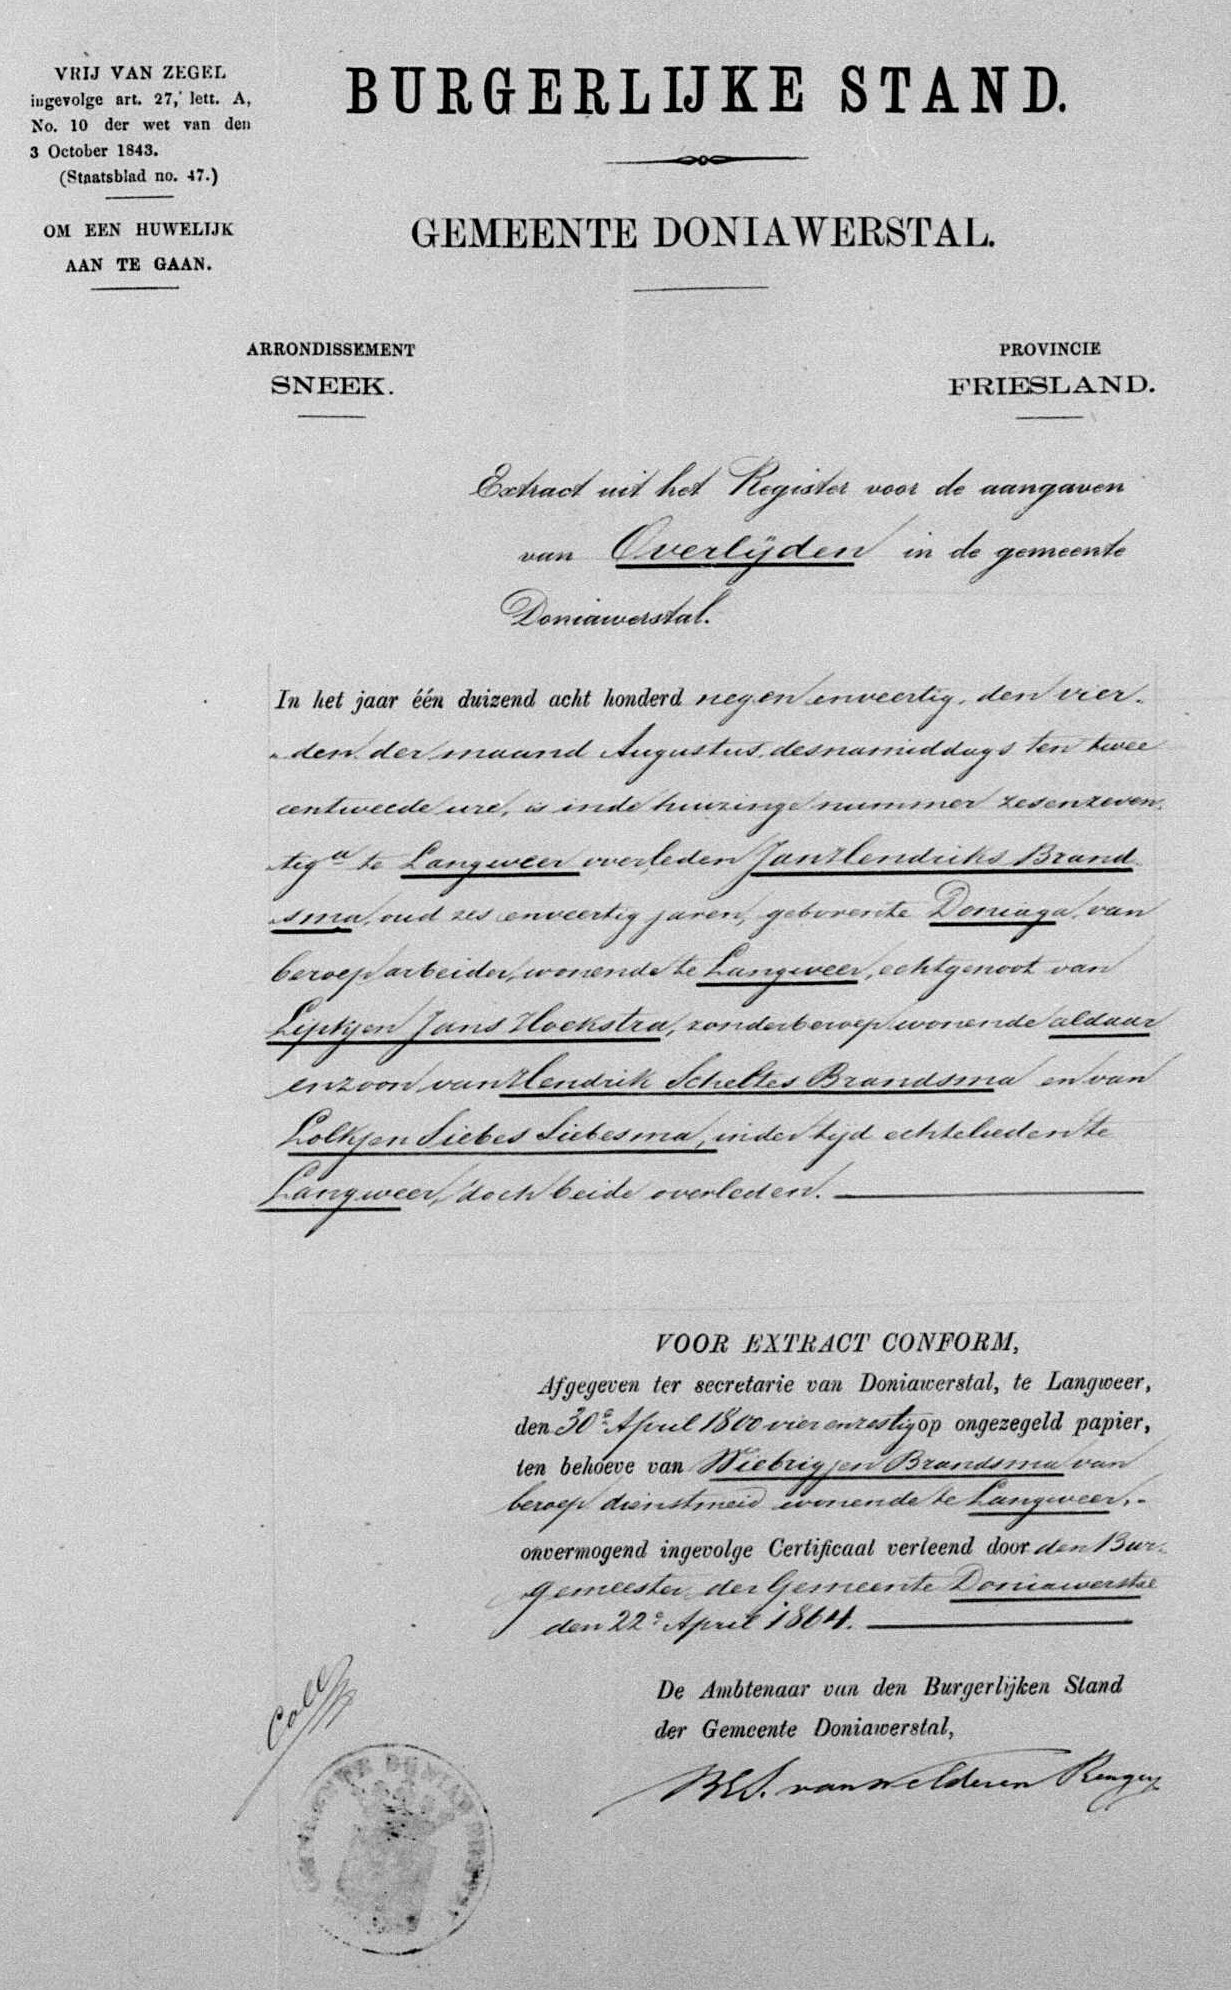 VRIJ VAN ZEGEL
ingevolge art. 27, lett. A,
No. 10 der wet van den
3 October 1843.
(Staatsblad no. 47.)
OM EEN HUWELIJK
AAN TE GAAN.
BURGERLIJKE STAND.
GEMEENTE DONIAWERSTAL.
ARRONDISSEMENT
SNEEK.
PROVINCIE
FRIESLAND.
Extract uit het Register voor de aangaven
van Overlijden in de gemeente
Doniawerstal.
In het jaar één duizend acht honderd negen enveertig, den vier-
den der maand Augustus, desnamiddags ten twee
entweede ure, is inde huizinge nummer zesenzeven
tig a te Langweer overleden Jan Hendriks Brand
sma, oud zes enveertig jaren, geboren te Doniaga, van
beroep arbeider, wonende te Langweer, echtgenoot van
Lipkjen Jans Hoekstra, zonder beroep wonende aldaar
en zoon van Hendrik Scheltes Brandsma en van
Lolkjen Siebes Siebesma, inder tijd echtelieden te
Langweer, doch beide overleden.
VOOR EXTRACT CONFORM,
Afgegeven ter secretarie van Doniawerstal, te Langweer,
den 30e April 1800 vier enzestig op ongezegeld papier,
ten behoeve van Wiebrigjen Brandsma van
beroep dienstmeid wonende te Langweer,
onvermogend ingevolge Certificaat verleend door den Bur-
gemeester der Gemeente Doniawerstal
den 22e April 1864.
De Ambtenaar van den Burgerlijken Stand
der Gemeente Doniawerstal,
van Welderen Rengers
Coll